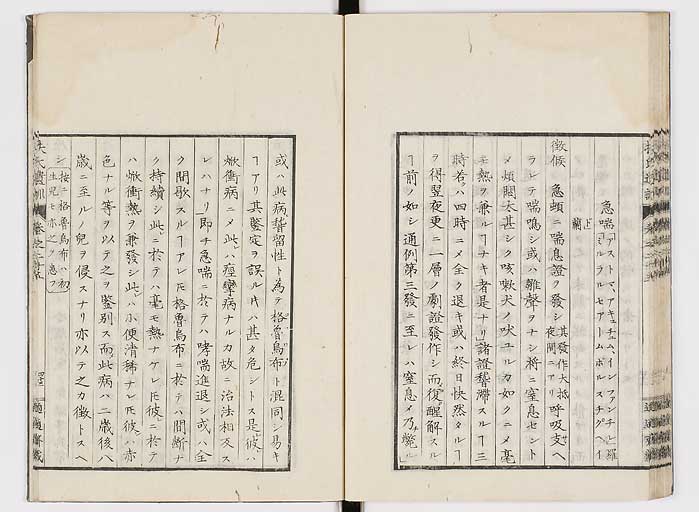 急喘
アストマ、アキュチュム、インファンチ 羅
ミルラルセアートムボルスチグヘイ
蘭
徴候 急頓ニ喘息證ヲ發シ其發作大抵夜間ニアリ呼吸支ヘ
ラレテ喘鳴シ或ハ雞聲ヲナシ將ニ窒息セント
メ煩悶太甚シク咳嗽犬ノ吠ユルカ如クニメ毫
モ熱ヲ兼ルヿナキ者是ナリ諸證稽滯スルヿ三
時若ハ四時ニメ全ク退キ或ハ終日快然タルヿ
ヲ得翌夜更ニ一層ノ劇證發作シ而復醒解スル
ヿ前ノ如シ通例第三發ニ至レハ窒息メ乃斃ル
或ハ此病稽留性ト為テ格魯布ト混同シ易キ
ヿアリ其鑒定ヲ誤ル片ハ甚タ危シトス是彼ハ
焮衝病ニメ此ハ痙攣病ナルカ故ニ治法相反ス
レハナリ即チ急喘ニ於テハ哮喘進退シ或ハ全
ク間歇スルヿアレ𪜈格魯布ニ於テハ間斷ナ
ク持續シ此ニ於テハ毫モ熱ナケレ𪜈彼ニ於テ
ハ焮衝熱ヲ兼發シ此ハ小便清稀ナレ𪜈彼ハ赤
色ナル等ヲ以テ之ヲ鑒別ス而此病ハ二歳後八
歳ニ至ルノ兒ヲ侵スナリ亦以テ之カ徴トスヘ
シ 按ニ格魯烏布ハ初生兒モ亦之ク患フ